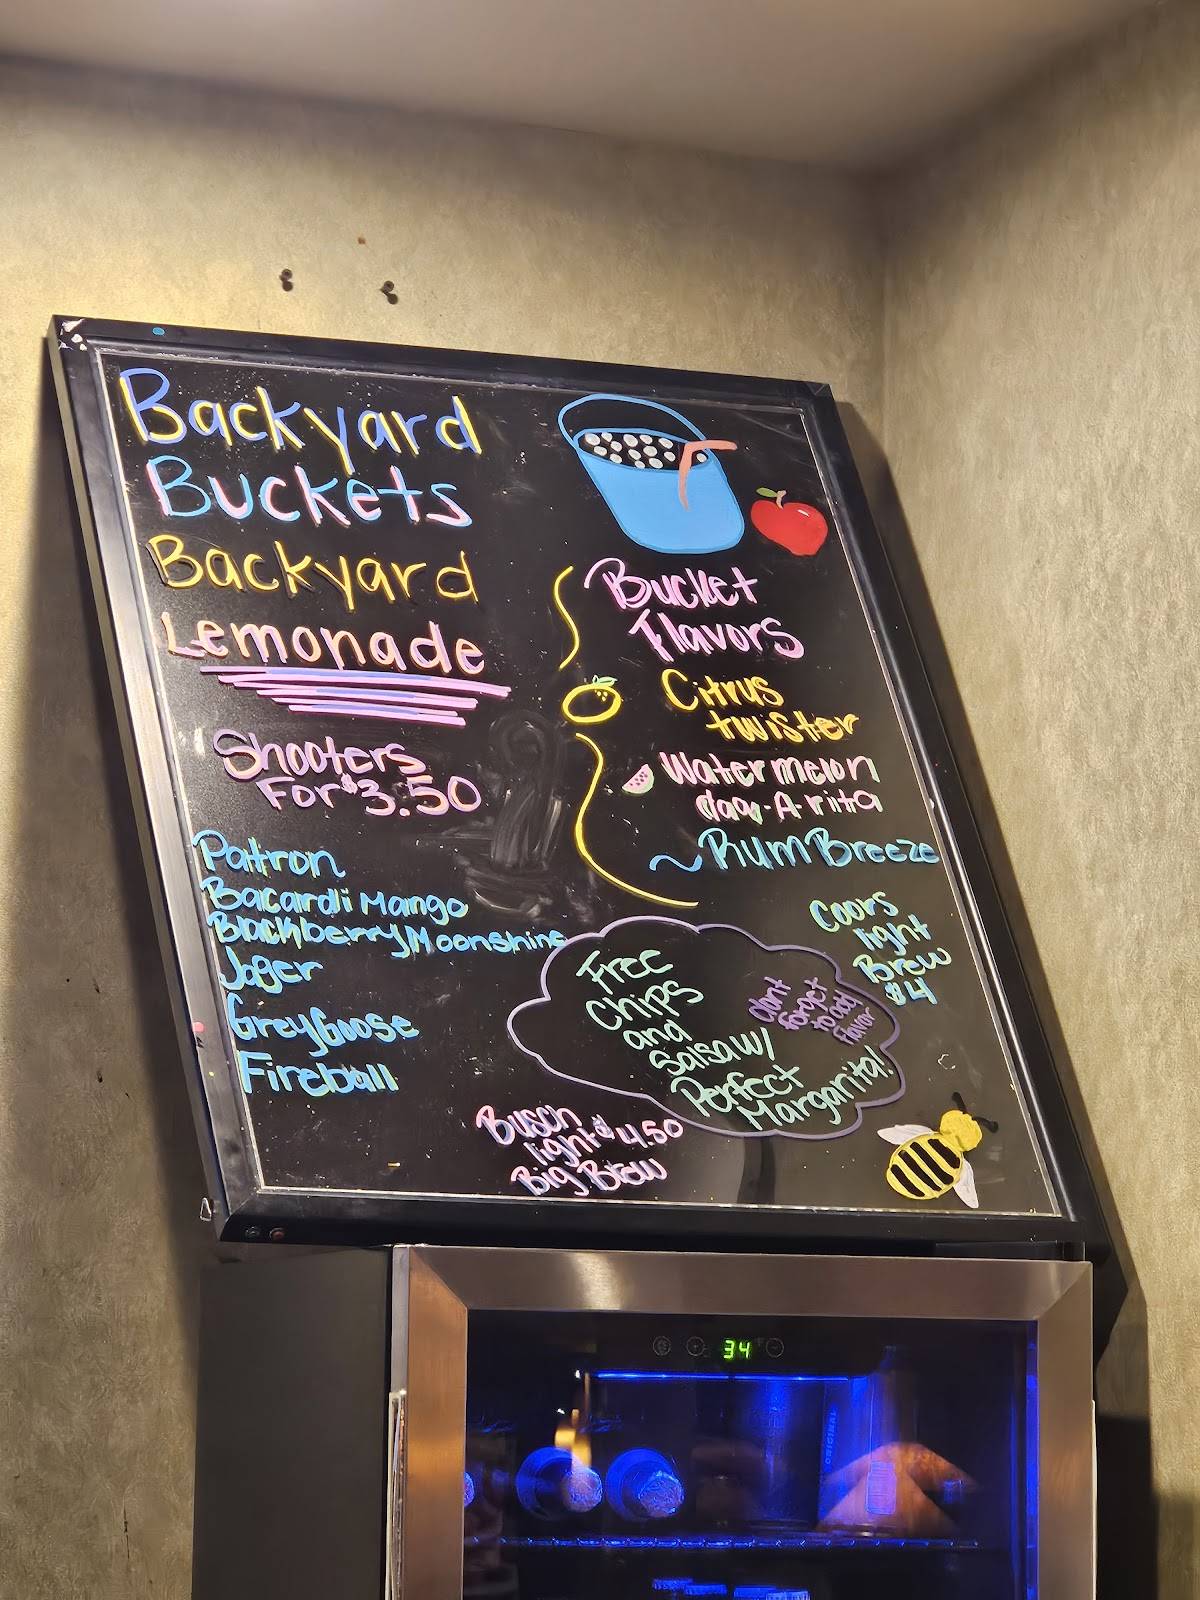 Backyard
Buckets
Backyard
Lemonade
Shooters
For $3.50
Patron
Bacardi Mango
Blackberry Moonshine
Jager
Grey Goose
Fireball
Bucket
Flavors
Citrus
twister
Watermelon
A-rita
Rum Breeze
Coors
light
Brew
$4
Free
Chips
and
Salsa w/
Perfect
Margarita!
dont
forget
to add
flavor
Busch
light $4.50
Big Brew
34
ORIGINAL